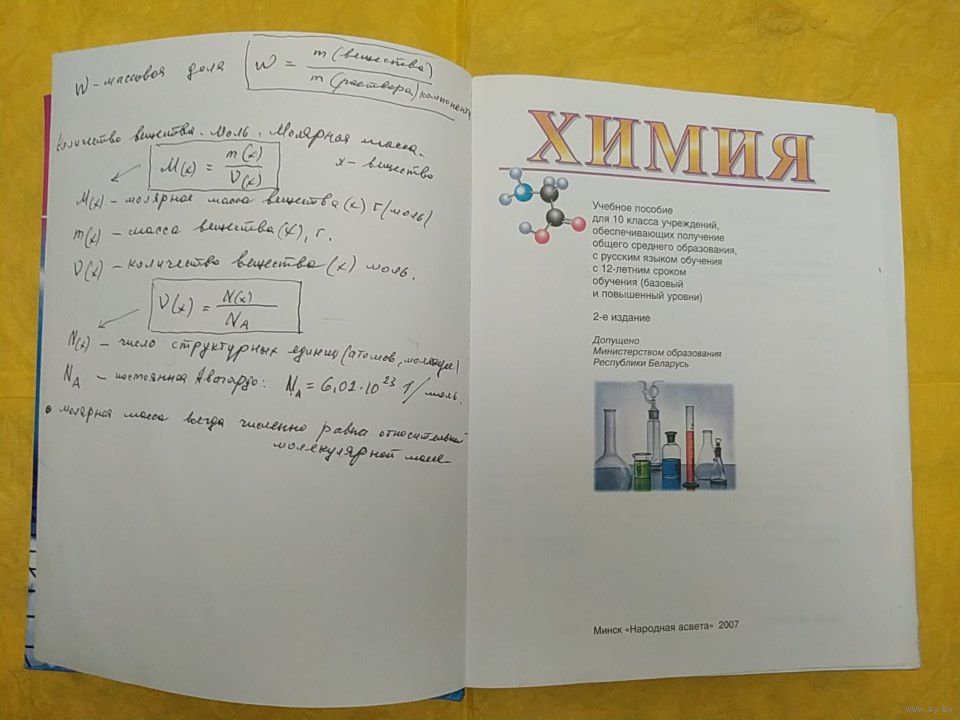 W - массовая доля
W = m(вещества) / m(раствора) компонента
Количество вещества. Моль. Молярная масса.
M(x) = m(x) / υ(x)
x - вещество
M(x) - молярная масса вещества (x) г/моль)
m(x) - масса вещества (x), г.
υ(x) - количество вещества (x) моль.
υ(x) = N(x) / NA
N(x) - число структурных единиц (атомов, молекул)
NA - постоянная Авогадро: NA = 6,02·10²³ 1/моль.
• молярная масса всегда численно равна относительной
молекулярной массе
ХИМИЯ
Учебное пособие
для 10 класса учреждений,
обеспечивающих получение
общего среднего образования,
с русским языком обучения
с 12-летним сроком
обучения (базовый
и повышенный уровни)
2-е издание
Допущено
Министерством образования
Республики Беларусь
Минск «Народная асвета» 2007
www.ay.by